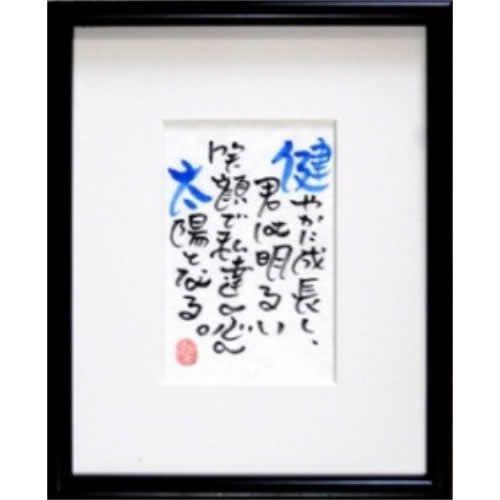 健やかに成長し、
君は明るい
笑顔で私達の心の
太陽となる。